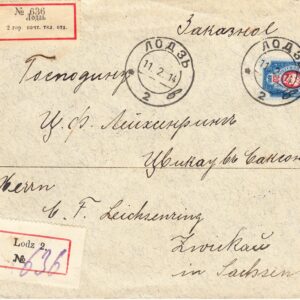 № 636
Лодзь
2 гор. почт. тел. отд.
Заказное
ЛОДЗЬ
11.2.14
2 б
ЛОДЗЬ
11.2.14
2 б
Господину
Ц. Ф. Лейхсенринг
Цвикау въ Саксон
Herrn
C. F. Leichsenring
Zwickau
in Sachsen
Lodz 2
№ 636